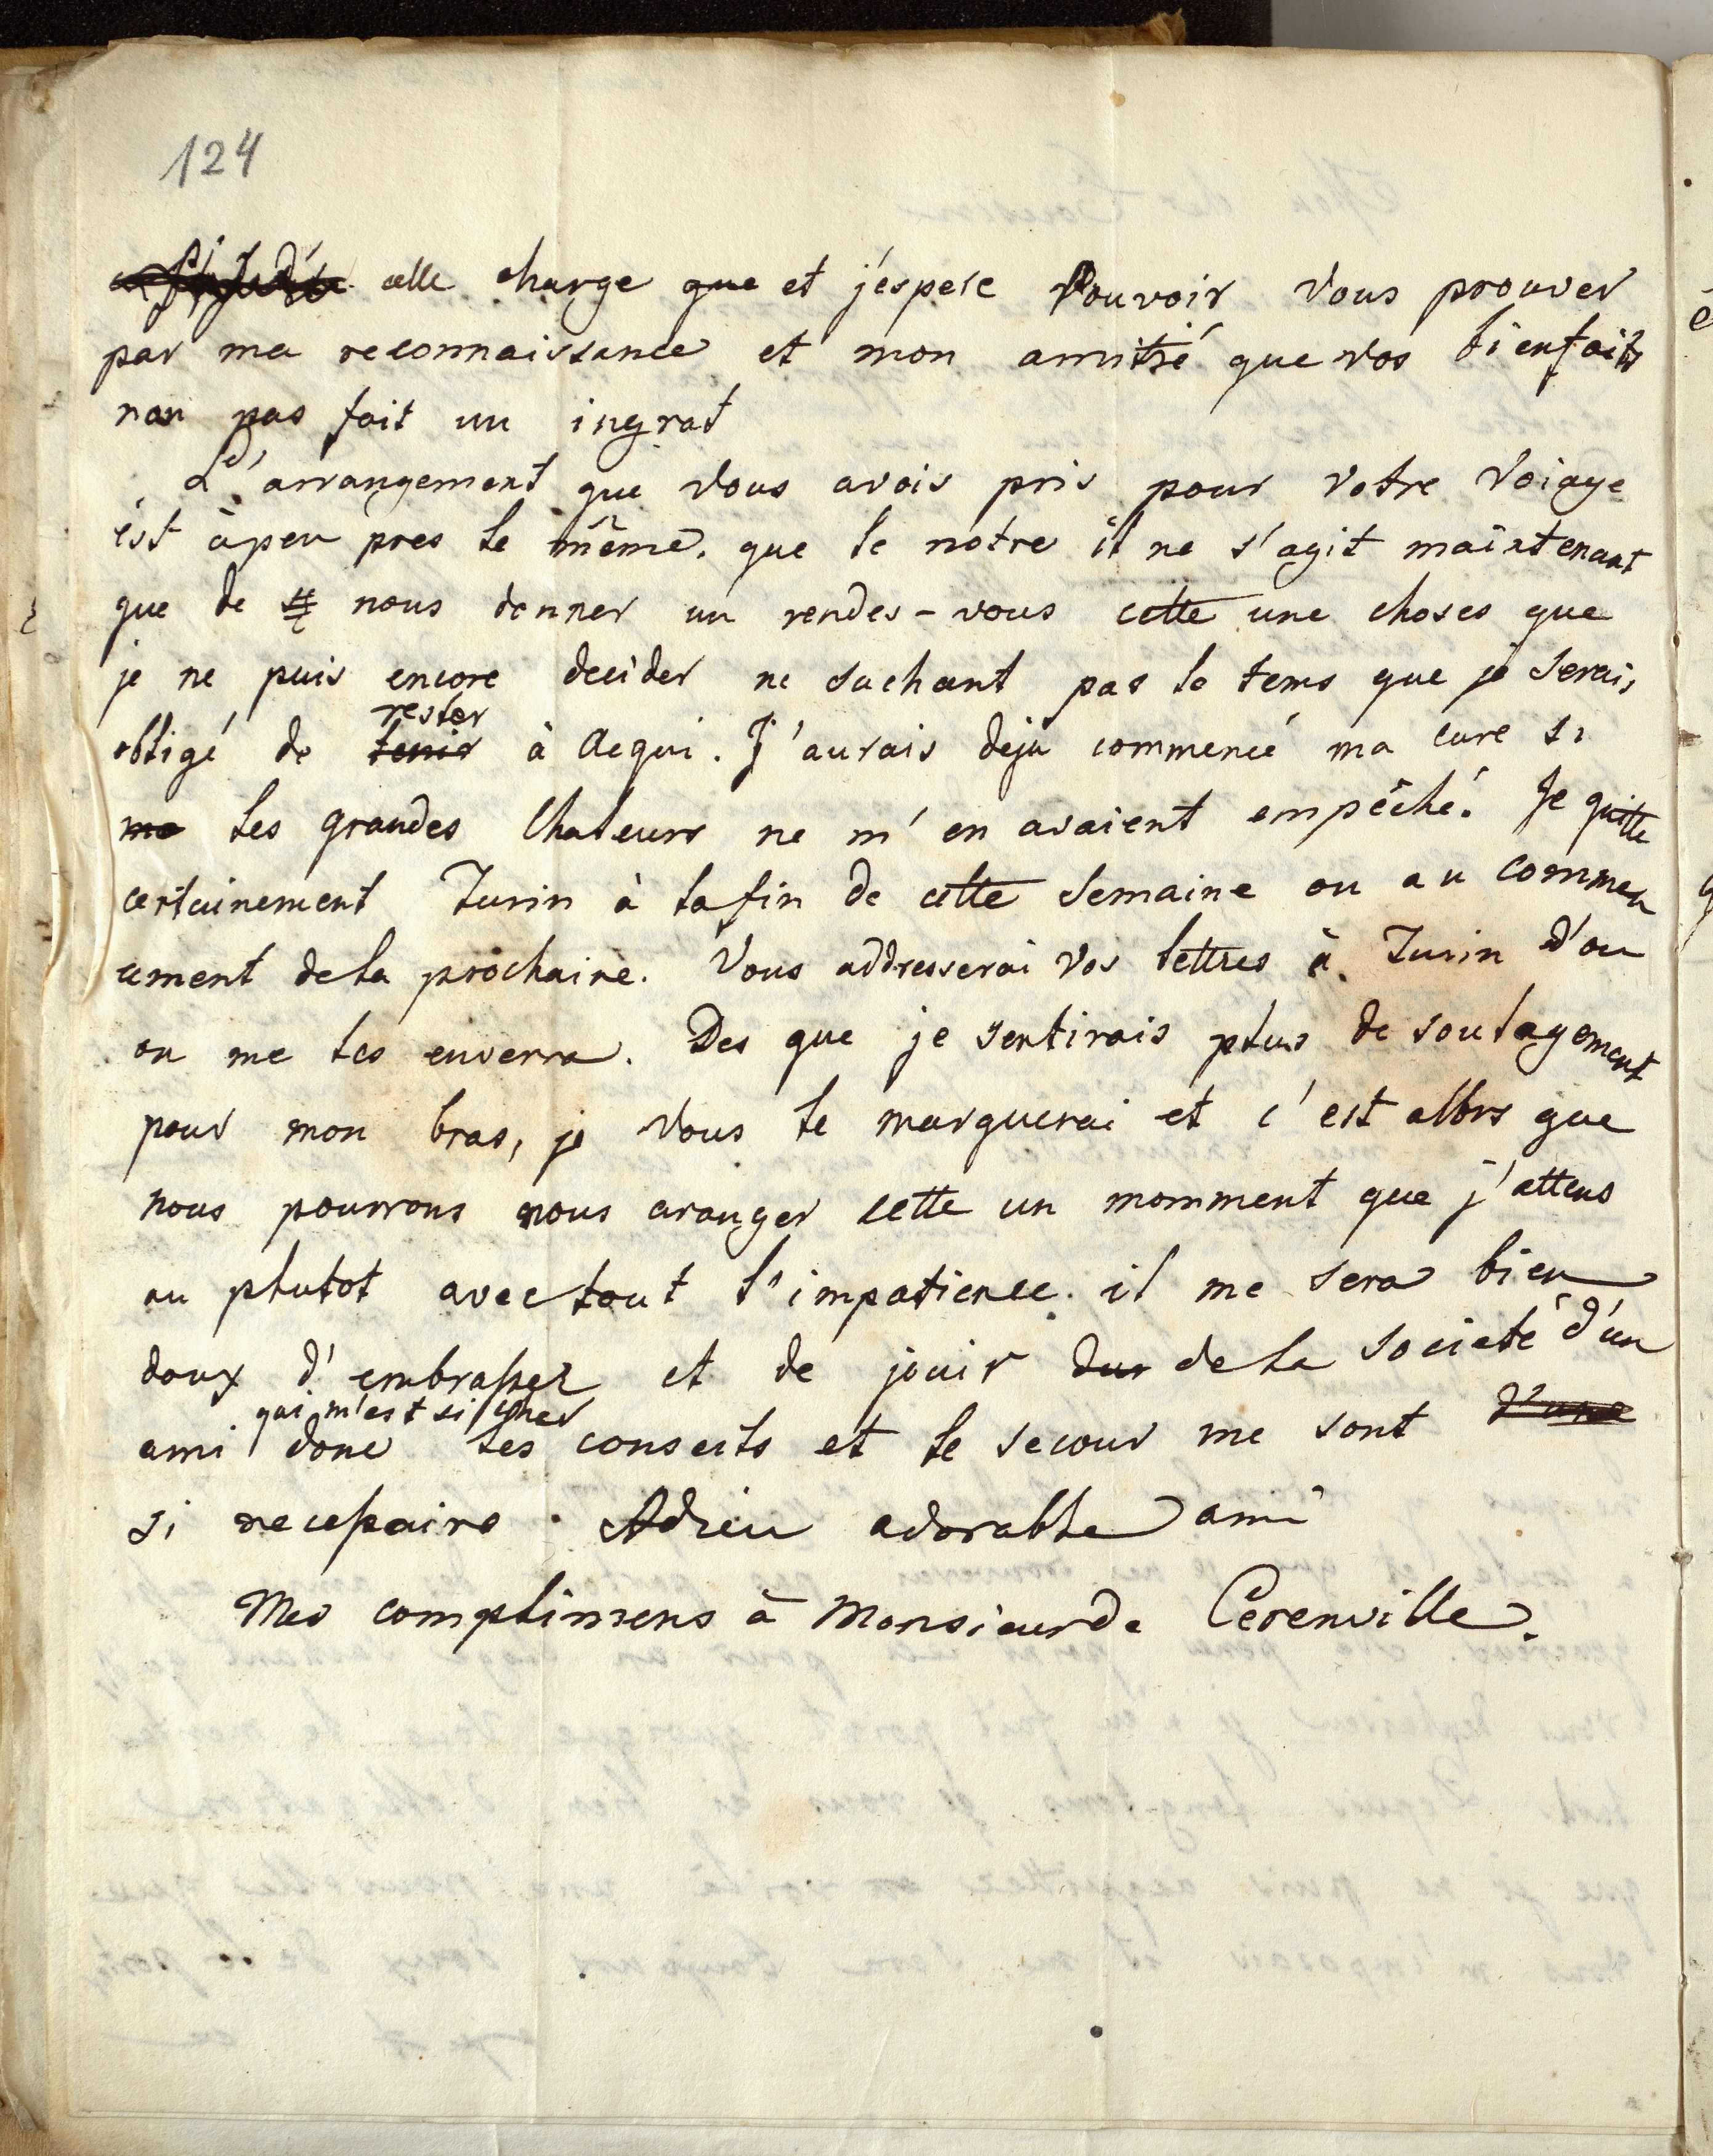 124
celle charge que et j'éspere pouvoir vous prouver
par ma reconnaissance et mon amitié que vos bienfaits
non pas fait un ingrat
L'arrangement que vous avois pris pour votre voiage
ést àpeu pres le même. que le notre il ne s'agit maintenant
que de nous donner un rendes-vous cette une choses que
je ne puis encore decider ne sachant pas le tems que je serais
rester
obligé de tenir à Acqui. J'aurais déjà commencé ma cure si
me les grandes Chaleurs ne m'en avaient empêché. Je quitte
certainement Turin à lafin de cette semaine ou au commen
cement dela prochaine. Vous addresserai vos lettres à Turin d'ou
on me les enverra. Des que je sentirais plus de soulagement
pour mon bras, je vous le marquerai et c'est allors que
nous pourrons nous aranger cette un momment que j'attens
au plutot avec tout l'impatience. il me sera bien
doux d'embrasser et de jouir dur dela societé d'un
qui m'est si cher
ami donc les conseils et le secour me sont d'une
si necessaire. Adieu adorable ami
Mes complimens à Monsieur de Cerenville.